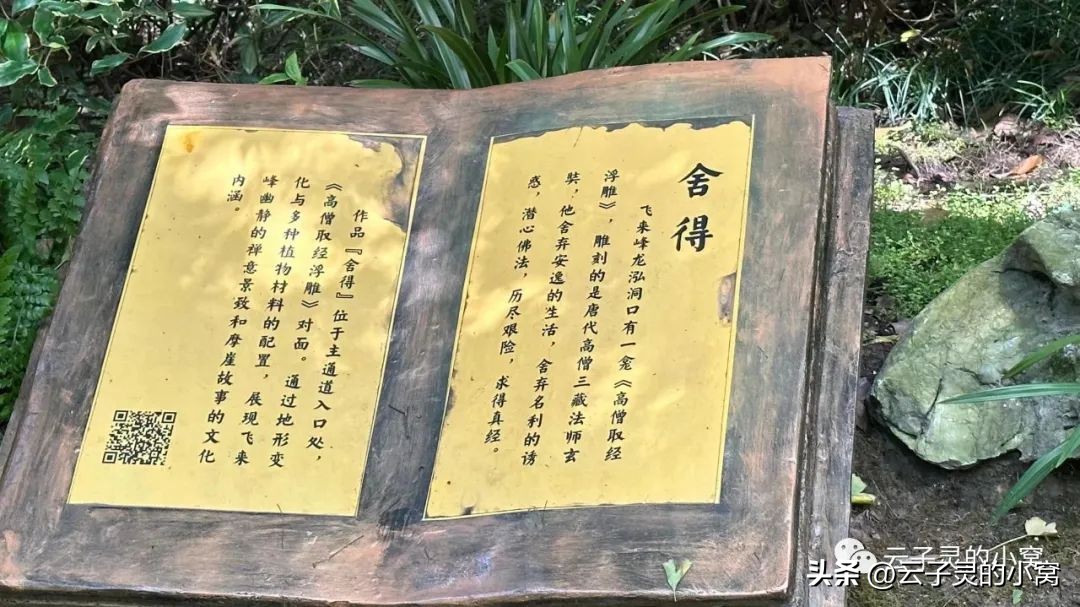 舍得
飞来峰龙泓洞口有一龛《高僧取经
浮雕》，雕刻的是唐代高僧三藏法师玄
奘，他舍弃安逸的生活，舍弃名利的诱
惑，潜心佛法，历尽艰险，求得真经。
作品『舍得』位于主通道入口处，
《高僧取经浮雕》对面。通过地形变
化与多种植物材料的配置，展现飞来
峰幽静的禅意景致和摩崖故事的文化
内涵。
云子灵的小窝
头条@云子灵的小窝